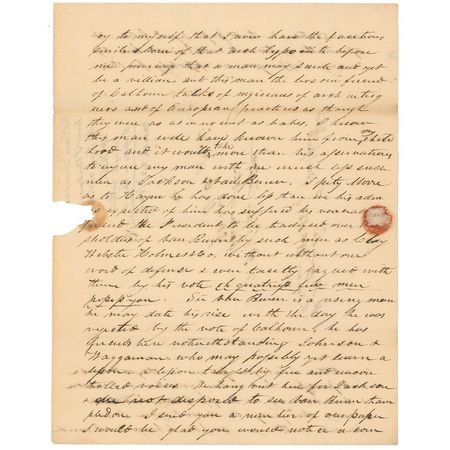 cy to myself that I now have the facetious
smile of that arch hypocrite before
me proving that a man may smile and yet
be a villain but this man the bosom friend
of Calhoun talks of magicians of arch intrig
uers and of European practices as though
they were as innocent as babes. I know
this man well have known him from my child
hood and it would take more than his asservations
to injure any man with me much less such
men as Jackson & Van Buren. I pity Moore
as to Hayne he has done less than we his adm
expected of him has suffered his venerable
friend the President to be traduced
of Van Buren by such men as Clay
Webster Holmes & Co. without without one
word of defense & even tacitly agreed with
them by his vote oh gratitude
Sir Van Buren is a rising man
he may date his rise with the day he was
rejected by the vote of Calhoun, he has
friends here notwithstanding Johnston &
Waggaman who may possibly yet learn a
lesson a lesson taught by free and uncon
trolled voices. We hang out here for Jackson
& are not disposed to see Van Buren tram
pled on. I send you a number of our paper
I would be glad you would notice a com